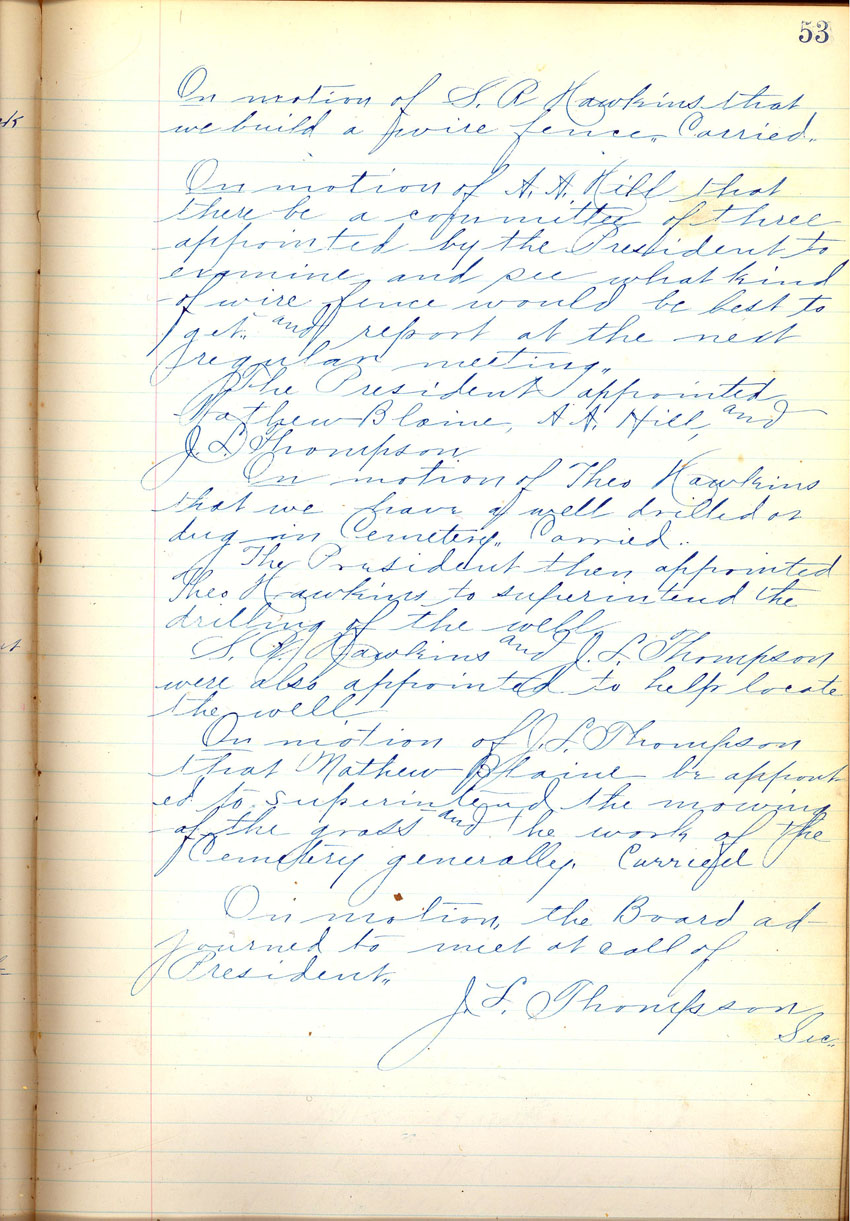 53
On motion of S. R Hawkins that
we build a wire fence,, Carried,,
On motion of A. A. Hill that
there be a committee of three
appointed by the President to
examine and see what kind
of wire fence would be best to
get,, and report at the next
regular meeting,,
The President appointed
Mathew Blaine, A A. Hill, and
J. L. Thompson
On motion of Theo Hawkins
that we have a well drilled or
dug in Cemetery,, Carried,,
The President then appointed
Theo Hawkins to superintend the
drilling of the well
S. R. Hawkins and J. L. Thompson
were also appointed to help locate
the well
On motion of J. L. Thompson
that Mathew Blaine be appoint
ed to superintend the mowing
of the grass and the work of the
Cemetery generally. Carried
On motion, the Board ad-
journed to meet at call of
President,,
J. L. Thompson
Sec,,